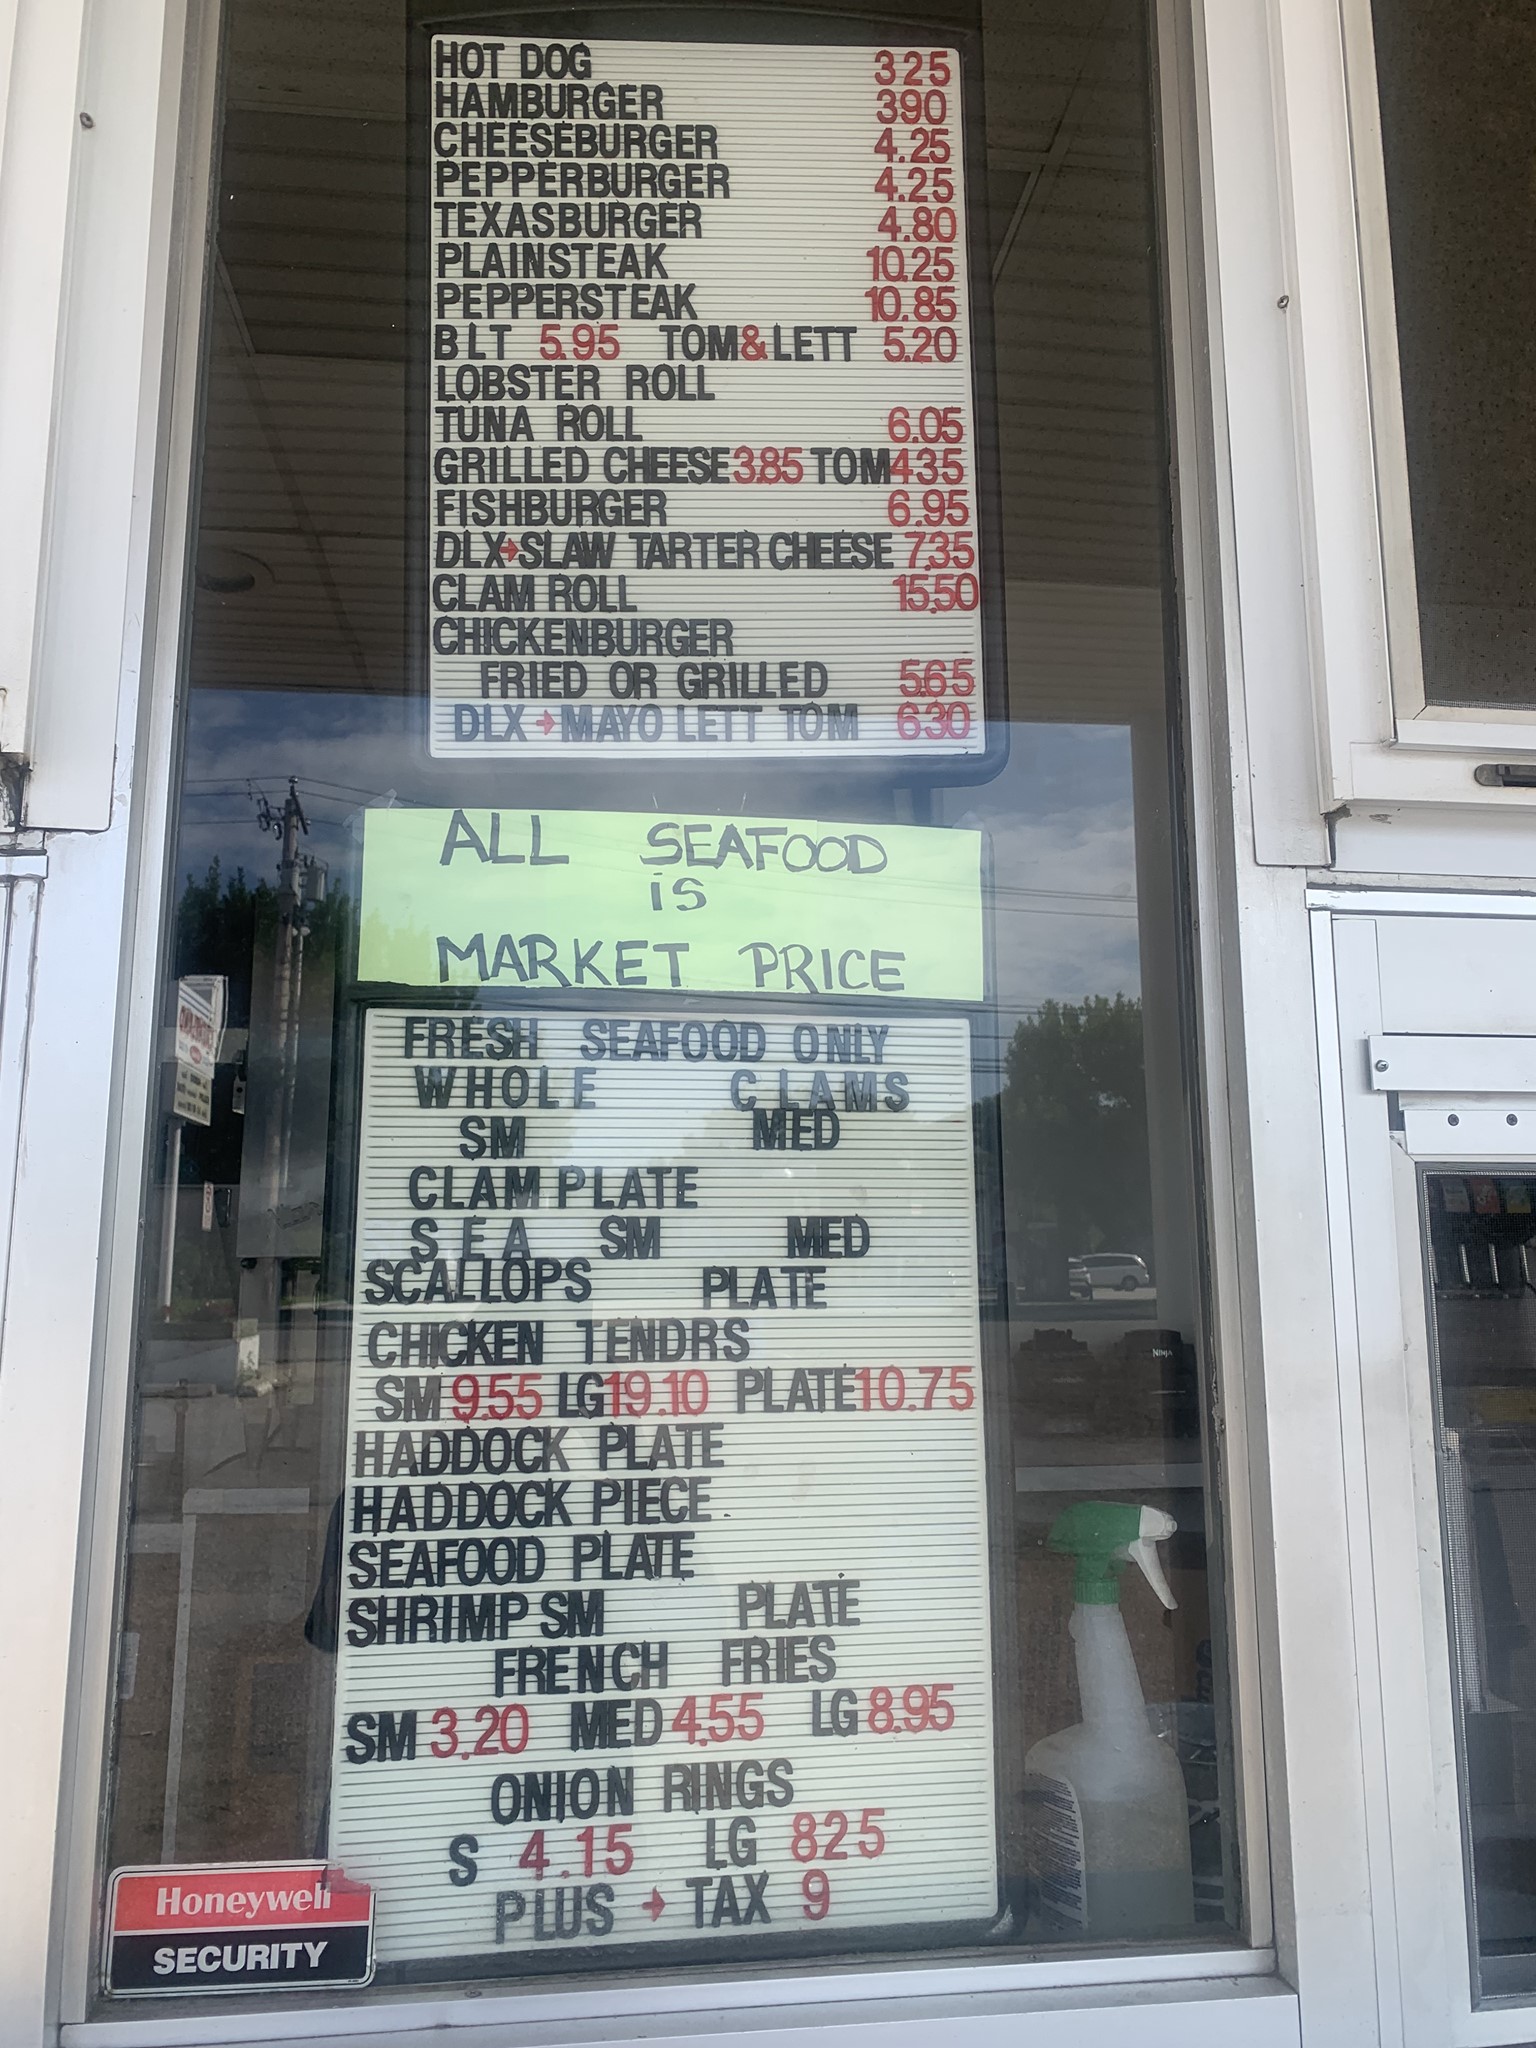 HOT DOG 325
HAMBURGER 390
CHEESEBURGER 4.25
PEPPERBURGER 4.25
TEXASBURGER 4.80
PLAINSTEAK 10.25
PEPPERSTEAK 10.85
BLT 5.95 TOM&LETT 5.20
LOBSTER ROLL
TUNA ROLL 6.05
GRILLED CHEESE 3.85 TOM 435
FISHBURGER 6.95
DLX→SLAW TARTER CHEESE 7.35
CLAM ROLL 15.50
CHICKENBURGER
FRIED OR GRILLED 565
DLX→MAYO LETT TOM 630
ALL SEAFOOD
iS
MARKET PRICE
FRESH SEAFOOD ONLY
WHOLE CLAMS
SM MED
CLAM PLATE
SEA SM MED
SCALLOPS PLATE
CHICKEN TENDRS
SM 9.55 LG 19.10 PLATE 10.75
HADDOCK PLATE
HADDOCK PIECE
SEAFOOD PLATE
SHRIMP SM PLATE
FRENCH FRIES
SM 3.20 MED 4.55 LG 8.95
ONION RINGS
S 4.15 LG 825
PLUS → TAX 9
Honeywell
SECURITY
NINJA